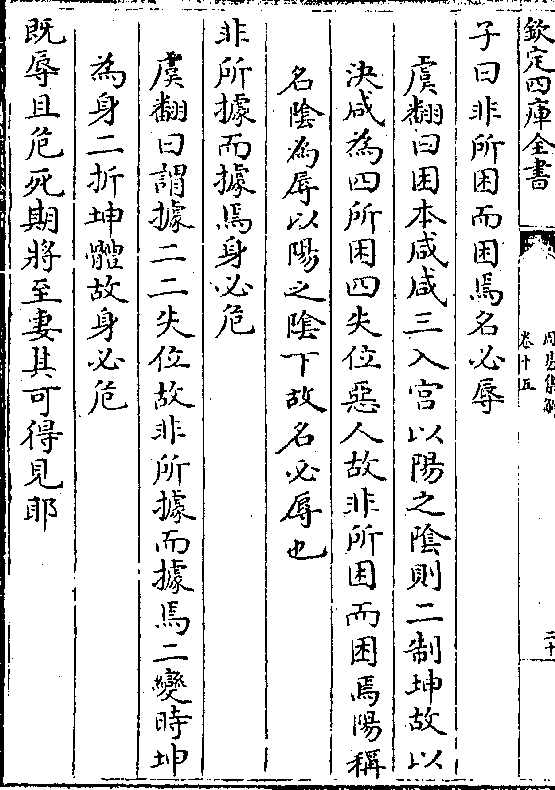 欽定四庫全書
周易集解
卷十五
二十
子曰非所困而困焉名必辱
虞翻曰困本咸咸三入宫以陽之陰則二制坤故以
決咸為四所困四失位惡人故非所困而困焉陽稱
名陰為辱以陽之陰下故名必辱也
非所據而據焉身必危
虞翻曰謂據二二失位故非所據而據焉二變時坤
為身二折坤體故身必危
既辱且危死期將至妻其可得見耶